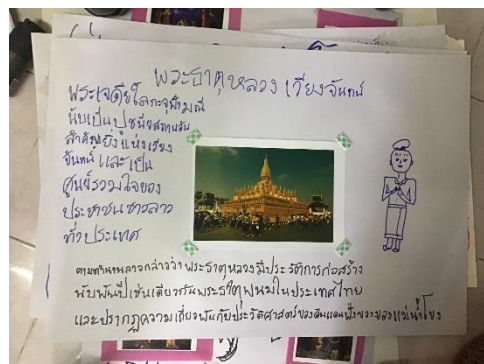 พระธาตุหลวง เวียงจันทน์
พระเจดีย์โลกะจุฬามณี
นับเป็นปูชนียสถานอัน
สำคัญยิ่งแห่งเวียง
จันทน์ และเป็น
ศูนย์รวมใจของ
ประชาชนชาวลาว
ทั่วประเทศ
ตามตำนานลาวกล่าวว่าพระธาตุหลวงมีประวัติการก่อสร้าง
นับพันปีเช่นเดียวกับพระธาตุพนมในประเทศไทย
และปรากฏความเกี่ยวพันกับประวัติศาสตร์ของดินแดนฝั่งขวาของแม่น้ำโขง